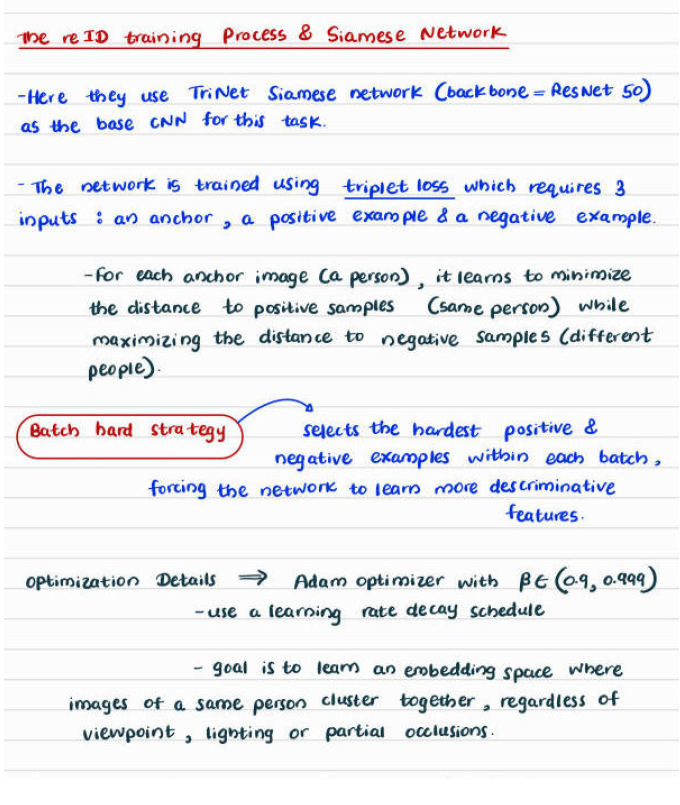 The reID training Process & Siamese Network
-Here they use TriNet Siamese network (backbone = ResNet 50)
as the base CNN for this task.
- The network is trained using triplet loss which requires 3
inputs : an anchor, a positive example & a negative example.
-for each anchor image (a person), it learns to minimize
the distance to positive samples (same person) while
maximizing the distance to negative samples (different
people).
Batch hard strategy
selects the hardest positive &
negative examples within each batch,
forcing the network to learn more descriminative
features.
optimization Details ⇒ Adam optimizer with β∈(0.9, 0.999)
-use a learning rate decay schedule
- goal is to learn an embedding space where
images of a same person cluster together, regardless of
viewpoint, lighting or partial occlusions.